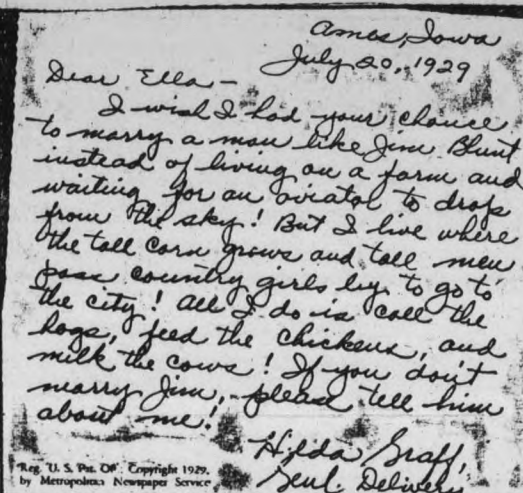 Ames, Iowa
July 20, 1929
Dear Ella -
I wish I had your chance
to marry a man like Jim Blunt
instead of living on a farm and
waiting for an aviator to drop
from the sky! But I live where
the tall corn grows and tall men
pass country girls by to go to
the city! All I do is call the
hogs, feed the chickens, and
milk the cows! If you don't
marry Jim, please tell him
about me!
Hilda Graff,
Genl. Delivery
Reg. U. S. Pat. Of Copyright 1929,
by Metropolitan Newspaper Service